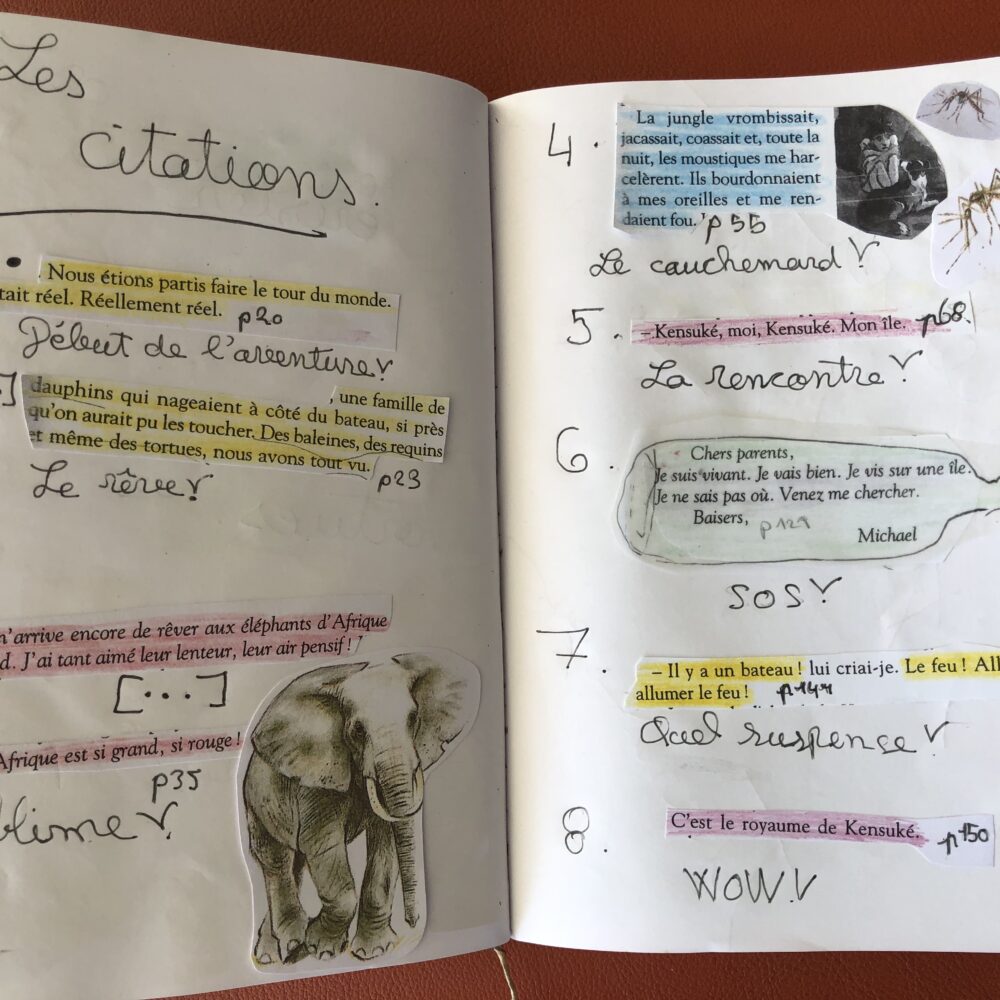 Les
citations.
Nous étions partis faire le tour du monde.
tait réel. Réellement réel. p20
Début de l'aventure!
, une famille de
dauphins qui nageaient à côté du bateau, si près
qu'on aurait pu les toucher. Des baleines, des requins
et même des tortues, nous avons tout vu. p23
Le rêve!
n'arrive encore de rêver aux éléphants d'Afrique
d. J'ai tant aimé leur lenteur, leur air pensif !
[...]
Afrique est si grand, si rouge !
p35
blime!
4. La jungle vrombissait,
jacassait, coassait et, toute la
nuit, les moustiques me har-
celèrent. Ils bourdonnaient
à mes oreilles et me ren-
daient fou. p55
Le cauchemard!
5. – Kensuké, moi, Kensuké. Mon île. p68.
La rencontre!
6. Chers parents,
Je suis vivant. Je vais bien. Je vis sur une île.
Je ne sais pas où. Venez me chercher.
Baisers, p129
Michael
SOS!
7. – Il y a un bateau ! lui criai-je. Le feu ! All
allumer le feu !
Quel suspense!
8. C'est le royaume de Kensuké. p150
WOW!!